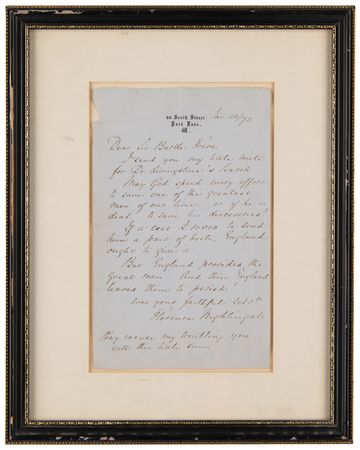 South Street,
Park Lane,
W.
Jan 23/72
Dear Sir Bartle Frere
I send you my little mite
for Dr Livingstone's Search
May God speed every effort
to save one of the greatest
men of our time or if he is
dead to save his discoveries!
If it cost £ to send
him a pair of boots, England
ought to give it.
But England provides the
Great men And then England
leaves them to perish!
ever your faithful
Florence Nightingale
Pray excuse my troubling you
with this little sum